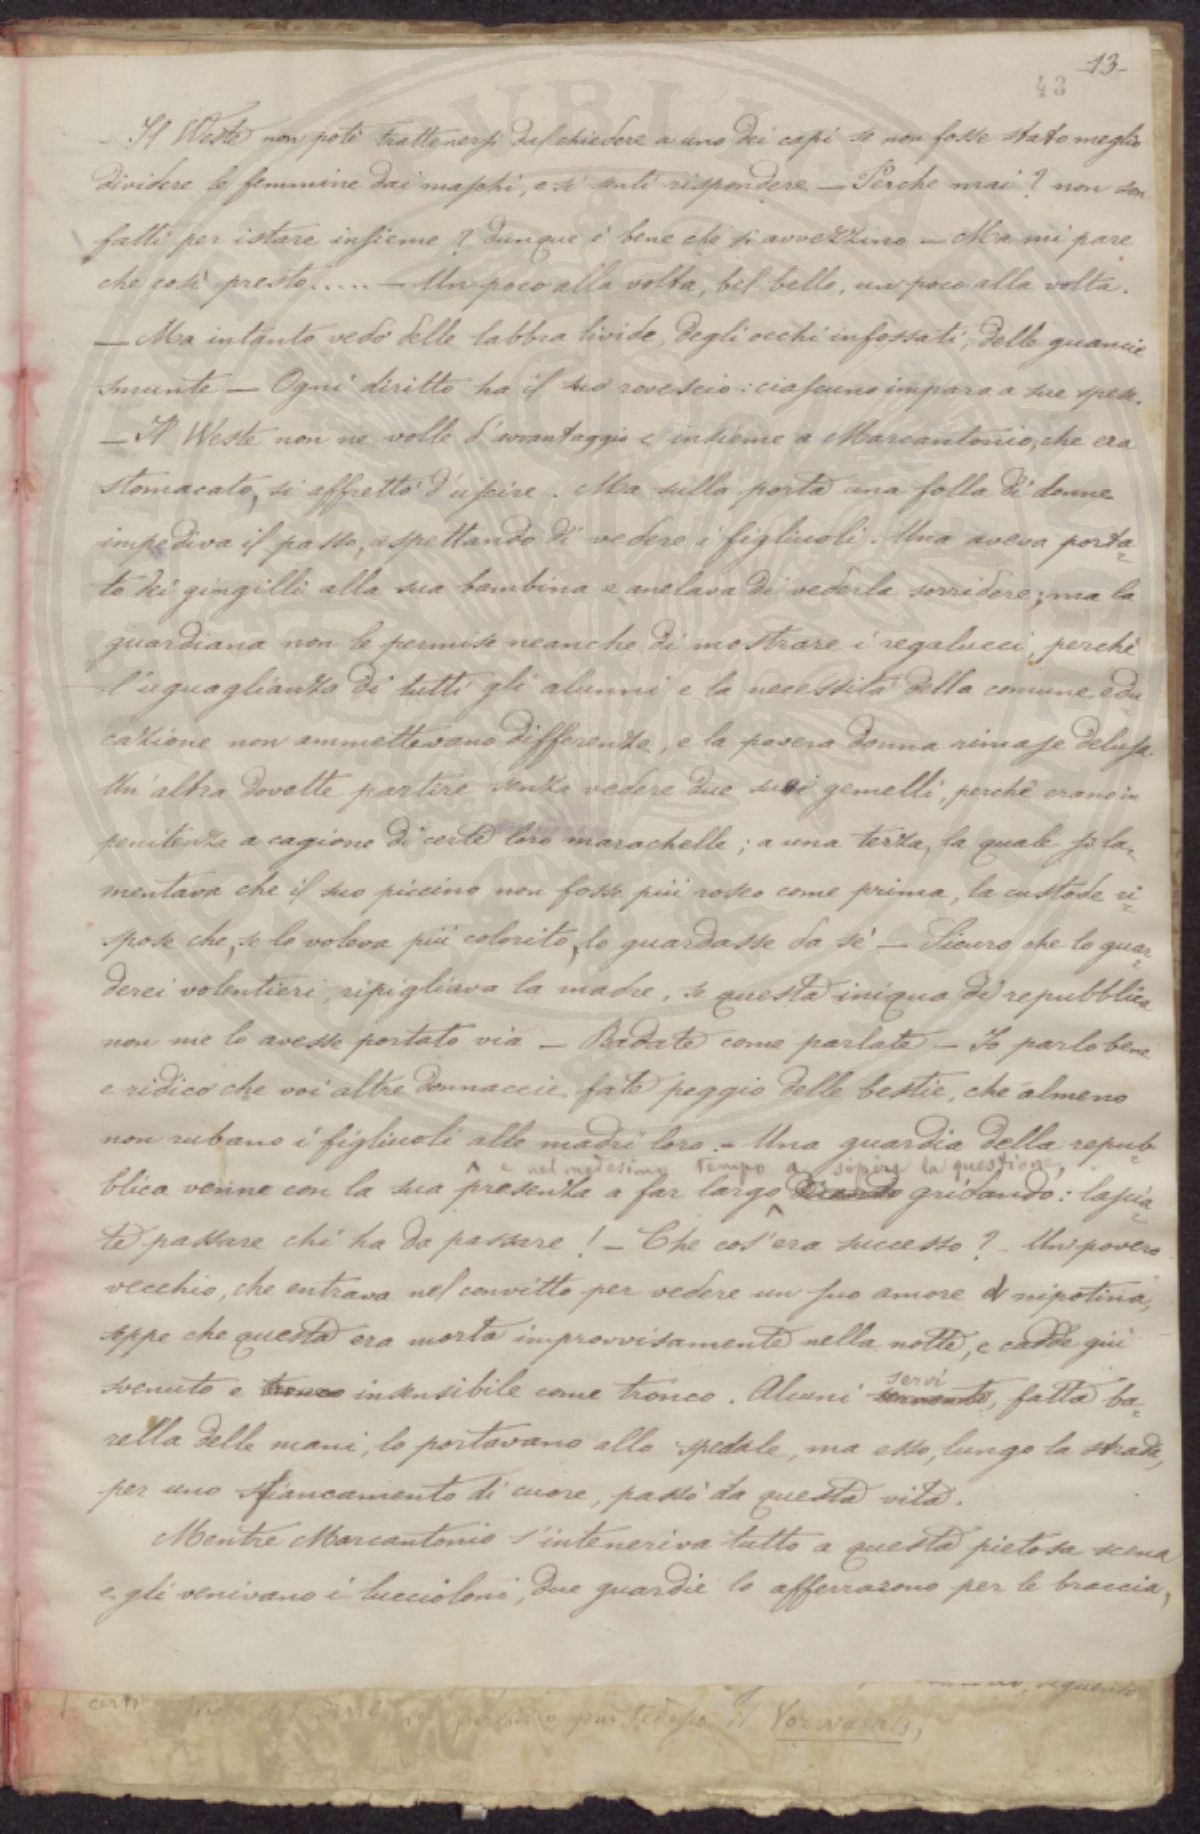 -13-
43
- Il Weste non potè trattenersi dal chiedere a uno dei capi se non fosse stato meglio
dividere le femmine dai maschi, e si sentì rispondere — Perchè mai? non son
fatti per istare insieme? dunque è bene che si avvezzino — Ma mi pare
che così presto..... — Un poco alla volta, bel bello, un poco alla volta.
— Ma intanto vedo delle labbra livide, degli occhi infossati, delle guancie
smunte — Ogni diritto ha il suo rovescio: ciascuno impara a sue spese.
— Il Weste non ne volle d'avvantaggio e insieme a Marcantonio, che era
stomacato, si affrettò d'uscire. Ma sulla porta una folla di donne
impediva il passo, aspettando di vedere i figliuoli. Una aveva porta=
to dei gingilli alla sua bambina e anelava di vederla sorridere; ma la
guardiana non le permise neanche di mostrare i regalucci, perchè
l'uguaglianza di tutti gli alunni e la necessità della comune edu=
cazione non ammettevano differenze, e la povera donna rimase delusa.
Un'altra dovette partire senza vedere due suoi gemelli, perchè erano in
penitenza a cagione di certe loro marachelle; a una terza, la quale si la=
mentava che il suo piccino non fosse più roseo come prima, la custode ri=
spose che, se lo voleva più colorito, lo guardasse da sè — Sicuro che lo guar=
derei volentieri, ripigliava la madre, se questa iniqua di repubblica
non me lo avesse portato via — Badate come parlate — Io parlo bene
e ridico che voi altre donnaccie fate peggio delle bestie, che almeno
non rubano i figliuoli alle madri loro. — Una guardia della repub=
e nel medesimo tempo a sopire la questione,
blica venne con la sua presenza a far largo gridando: lascia=
te passare chi ha da passare! — Che cos'era successo? Un povero
vecchio, che entrava nel convitto per vedere un suo amore di nipotina,
seppe che questa era morta improvvisamente nella notte, e cadde giù
svenuto e tronco insensibile come tronco. Alcuni servi, fatta ba=
rella delle mani, lo portavano allo spedale, ma esso, lungo la strada,
per uno stiancamento di cuore, passò da questa vita.
Mentre Marcantonio s'inteneriva tutto a questa pietosa scena
e gli venivano i luccioloni, due guardie lo afferrarono per le braccia,
seguendo
Vorwaerts,